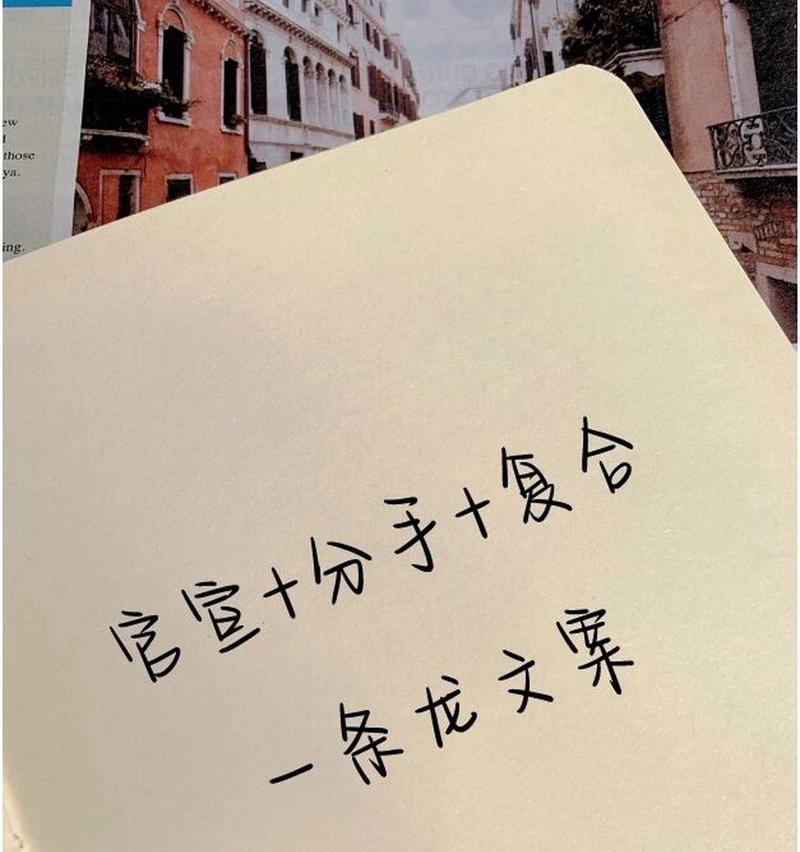 ew
those
ya.
ing.
官宣+分手+复合
一条龙文案